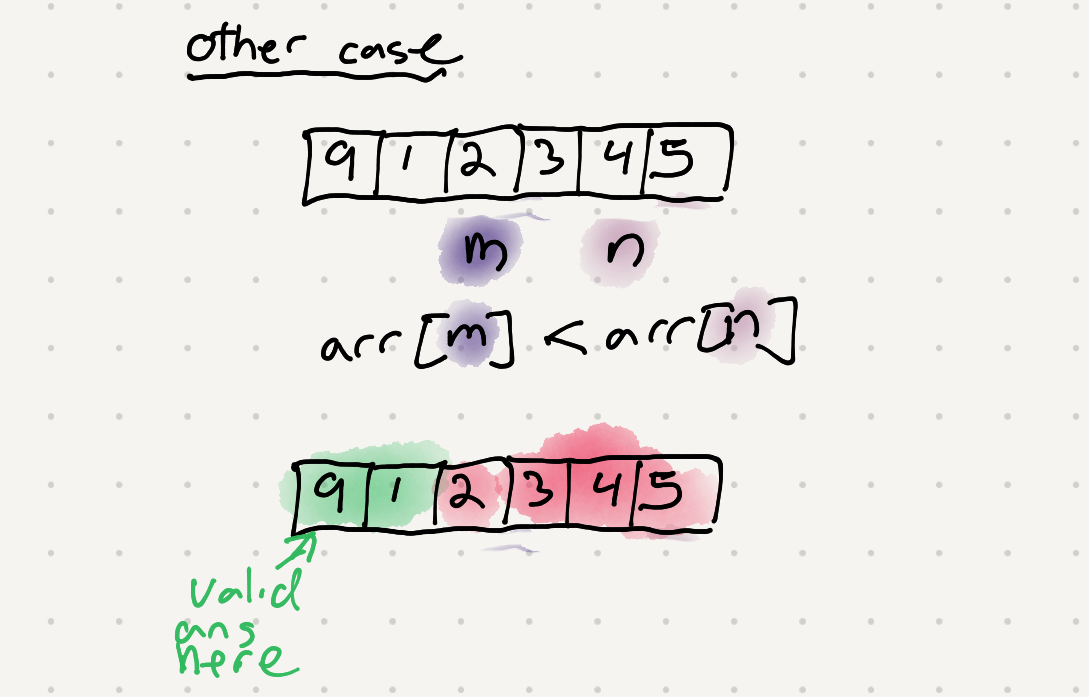 other case
9 1 2 3 4 5
m n
arr[m] < arr[n]
9 1 2 3 4 5
valid
ans
here